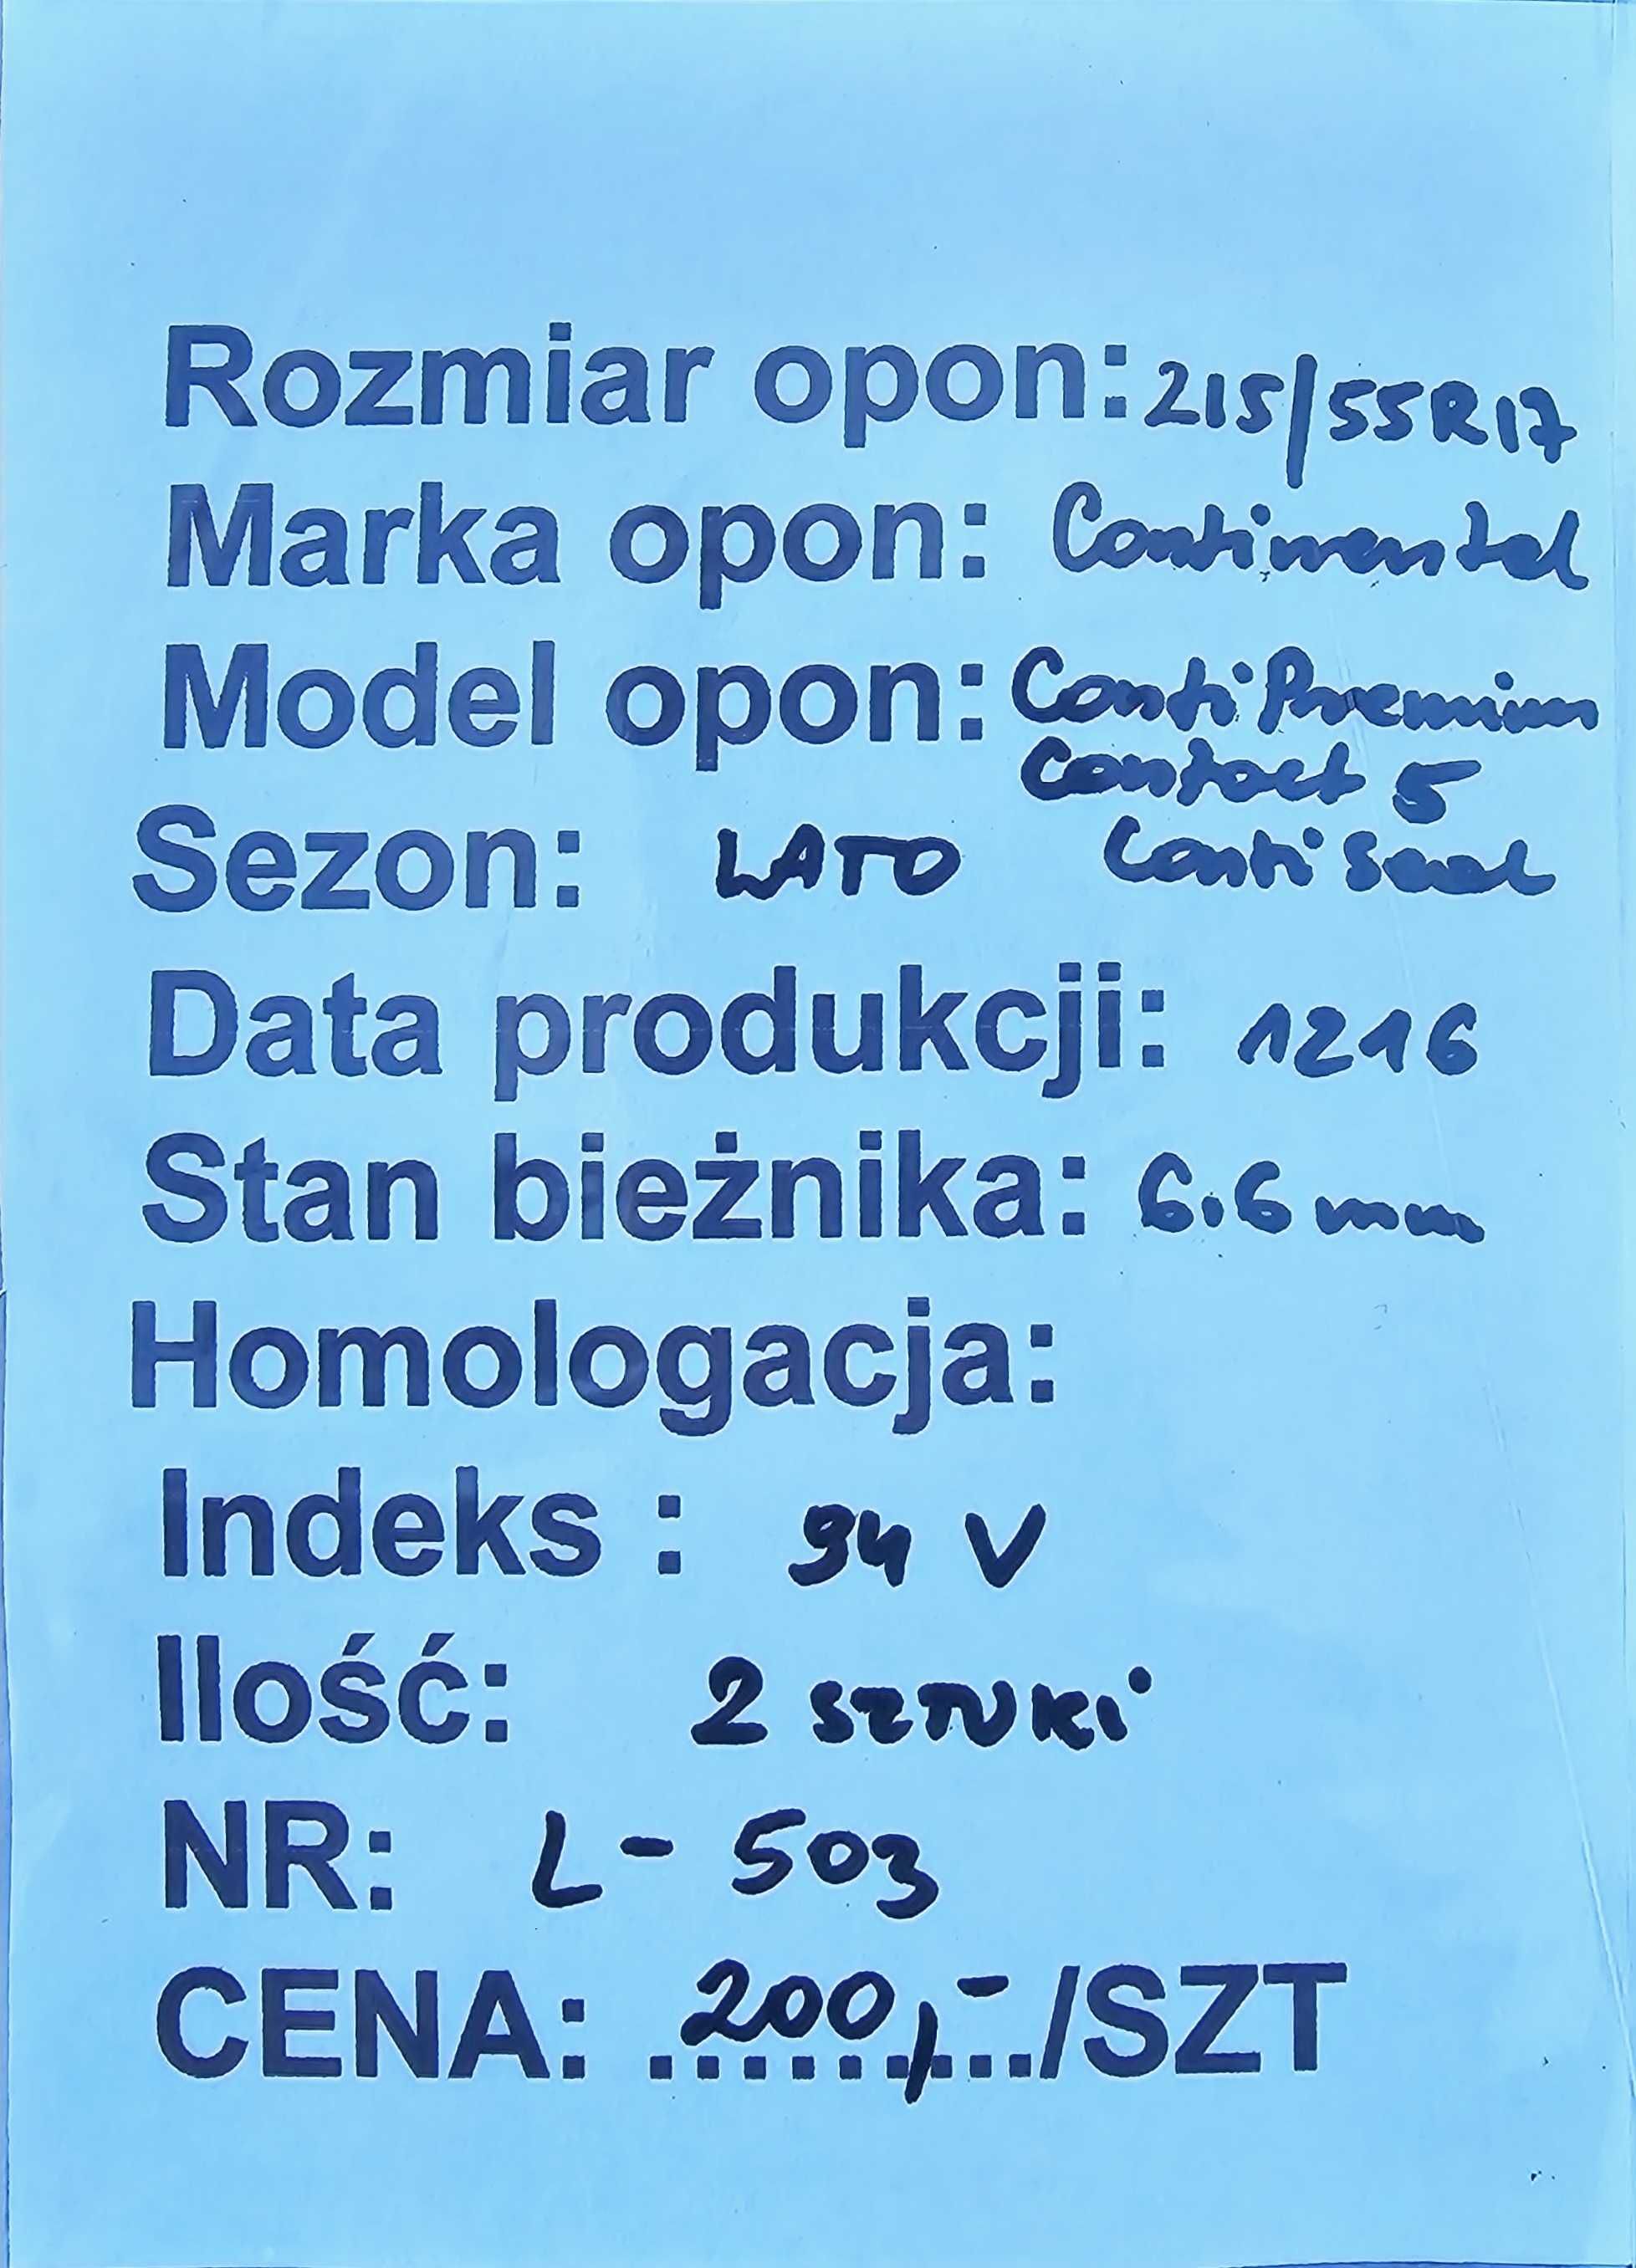 Rozmiar opon: 215/55R17
Marka opon: Continental
Model opon: ContiPremium
Contact 5
Sezon: LATO ContiSeal
Data produkcji: 1216
Stan bieżnika: 6.6 mm
Homologacja:
Indeks : 94 V
Ilość: 2 SZTUKi
NR: L-503
CENA: 200,-/SZT